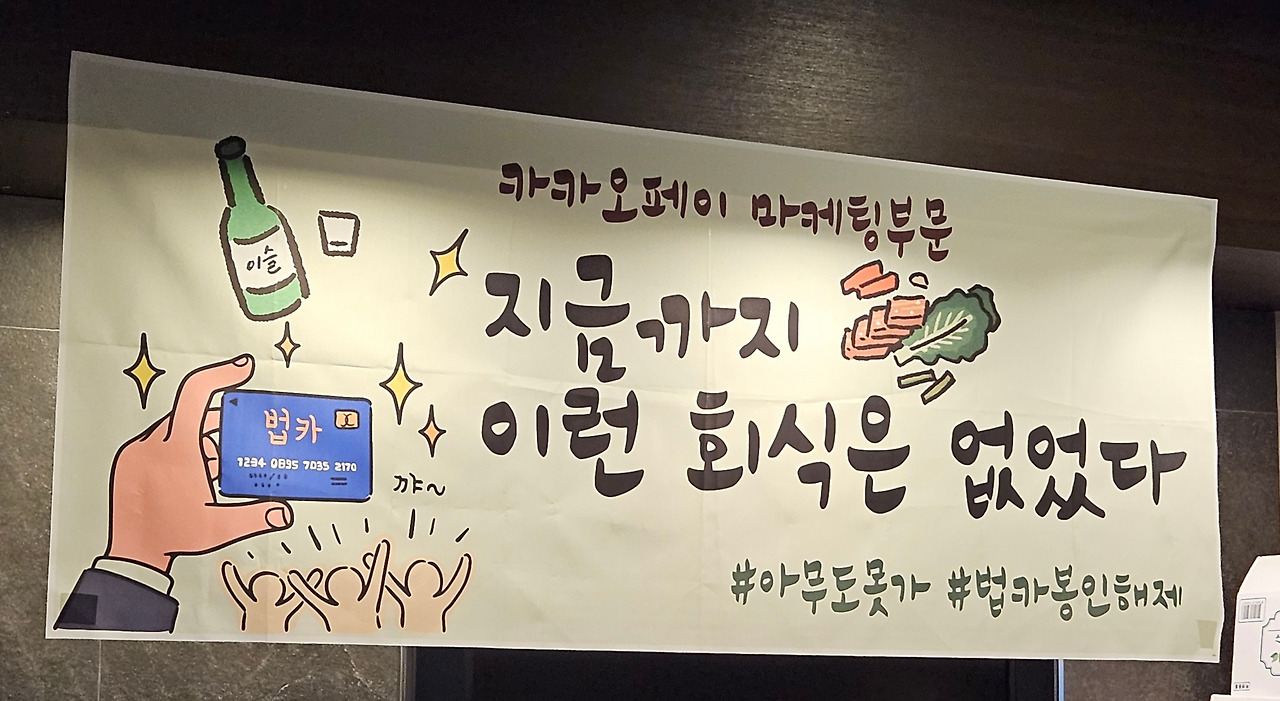 카카오페이 마케팅부문
지금까지
이런 회식은 없었다
#아무도못가 #법카봉인해제
이슬
법카
1234 0895 7035 2170
꺄~